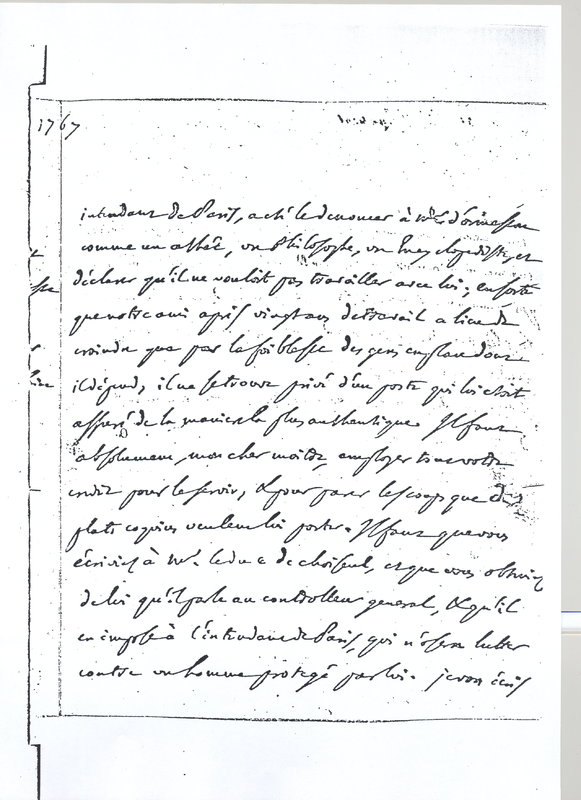 1767
intendant de Paris, a été le denoncer à Mr d'ormesson
comme un athée, un Philosophe, un Encyclopediste, et
déclarer qu'il ne vouloit pas travailler avec lui; en sorte
que notre ami après vingt ans de travail a lieu de
craindre que par la foiblesse des gens en place dont
il dépend, il ne se trouve privé d'un poste qui lui étoit
assuré de la maniere la plus authentique. Il faut
absolument, mon cher maitre, employer tout votre
crédit pour le servir, & pour parer les coups que de
plats coquins veulent lui porter. Il faut que vous
écriviez à Mr. le duc de choiseul, et que vous obteniez
de lui qu'il parle au controlleur general, & qu'il
en impose à l'intendant de Paris, qui n'osera lutter
contre un homme protegé par lui. je vous écris